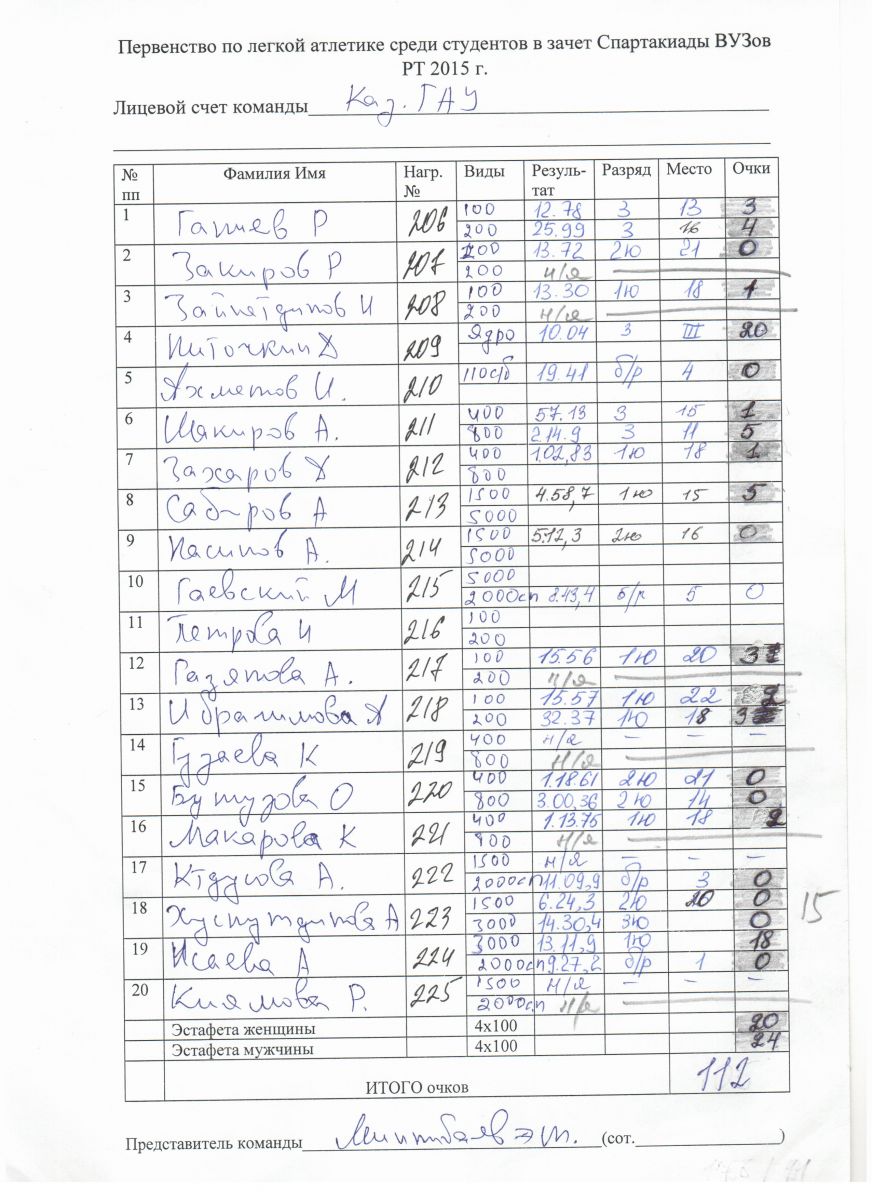 Первенство по легкой атлетике среди студентов в зачет Спартакиады ВУЗов
РТ 2015 г.
Лицевой счет команды Каз. ГАУ
№ пп Фамилия Имя Нагр. № Виды Резуль-тат Разряд Место Очки
1 Р 206 100 12.78 3 13 3
200 25.99 3 16 4
2 Закиров Р 207 100 13.72 2ю 21 0
200 н/я
3 Зайнетдинов И 208 100 13.30 1ю 18 1
200 н/я
4 Ниточкин Д 209 Ядро 10.04 3 III 20
5 Ахметов И. 210 110с/б 19.41 б/р 4 0
6 Шакиров А. 211 400 57.13 3 15 1
800 2.14.9 3 11 5
7 Захаров Д 212 400 1.02,83 1ю 18 1
800
8 Сабиров А 213 1500 4.58,7 1ю 15 5
5000
9 Насипов А. 214 1500 5.12,3 2ю 16 0
5000
10 Гаевский М 215 5000
2000сп 8.43,4 б/р 5 0
11 Петрова И 216 100
200
12 Газяпова А. 217 100 15.56 1ю 20 3
200 н/я
13 Ибрагимова А 218 100 15.57 1ю 22 2
200 32.37 1ю 18 3
14 Гузаева К 219 400 н/я — — —
800 н/я
15 Бутузова О 220 400 1.18.61 2ю 21 0
800 3.00,36 2ю 14 0
16 Макарова К 221 400 1.13.75 1ю 18 2
800 н/я
17 А. 222 1500 н/я — — —
2000сп 11.09,9 б/р 3 0
18 Хуснутдинова А 223 1500 6.24,3 2ю 20 0 15
3000 14.30,4 3ю 0
19 Исаева А 224 3000 13.11,9 1ю 18
2000сп 9.27,2 б/р 1 0
20 Киямова Р. 225 1500 н/я — — —
2000сп н/я
Эстафета женщины 4х100 20
Эстафета мужчины 4х100 24
ИТОГО очков 112
Представитель команды (сот. )